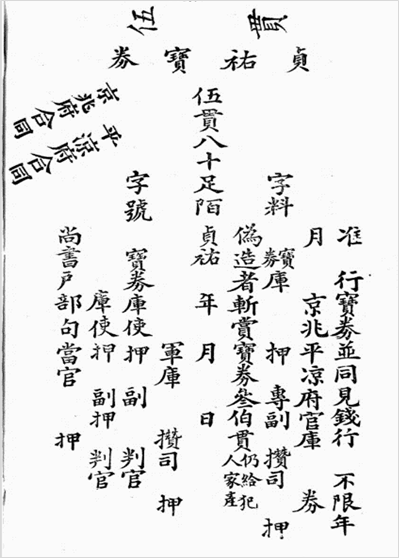 伍貫
貞祐寶券
准 行寶券並同見錢行 不限年
月 京兆平凉府官庫 券
字料 寶券庫 押 專副 攢司 押
偽造者斬賞寶券叄伯貫仍給犯人家產
伍貫八十足陌 貞祐 年 月 日
軍庫 攢司 押
字號 寶券庫使 押 副 判官
庫使押 副押 判官
尚書戶部句當官 押
平凉府合同
京兆府合同